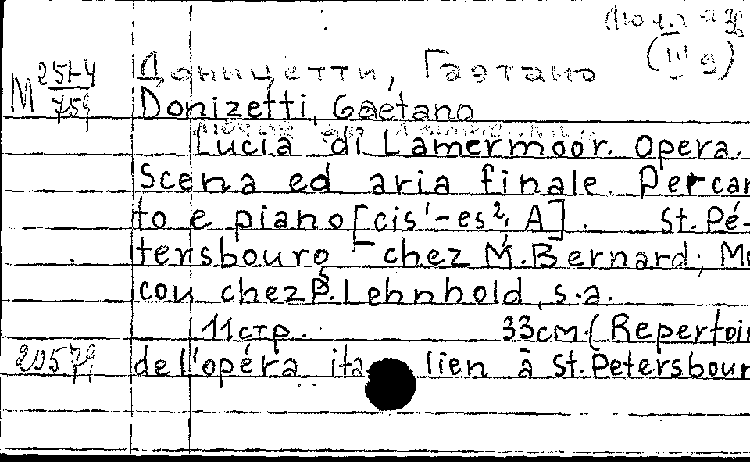 (IV 9)
М 251-4 Доницетти, Гаэтано
754 Donizetti, Gaetano
Lucia di Lamermoor. Opera.
Scena ed aria finale. Per can
to e piano [cis'-es², A]. St. Pé-
tersbourg – chez M. Bernard; Mo
cou chez P. Lehnhold, s.a.
11 стр. 33 см. (Repertoir
20579 dell'opéra ita lien à St. Petersbour